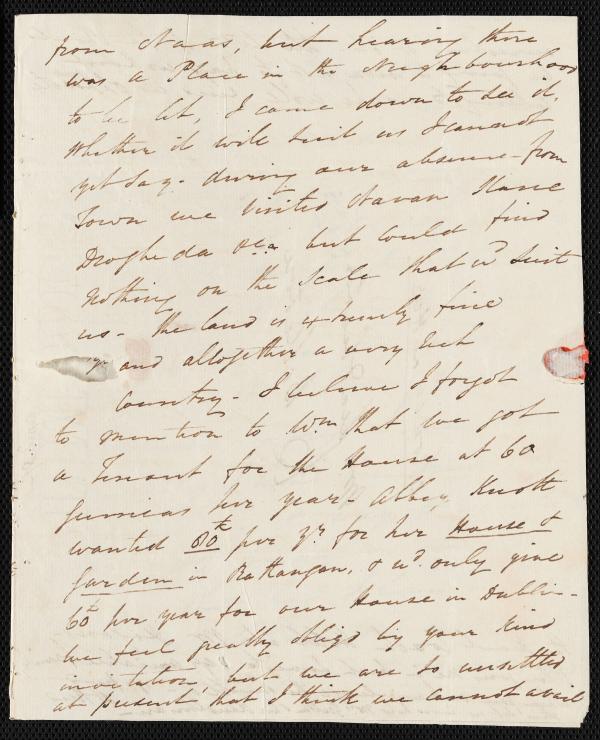 from Naas, but hearing there
was a Place in the Neighbourhood
to be let, I came down to see it,
Whether it will suit us I cannot
yet say. during our absence from
Town we visited Navan Slane
Drogheda &ca but could find
Nothing on the scale that wd suit
us - the land is extremely fine
and altogether a very rich
Country - I believe I forgot
to mention to Wm that we got
a Tenant for the House at 60
guineas per year - Abbey Knott
wanted 80£ per yr for her House &
Garden in Rathangan, & wd only give
60£ per year for our House in Dublin -
we feel greatly obligd by your kind
invitation but we are so unsettled
at present, that I think we cannot avail